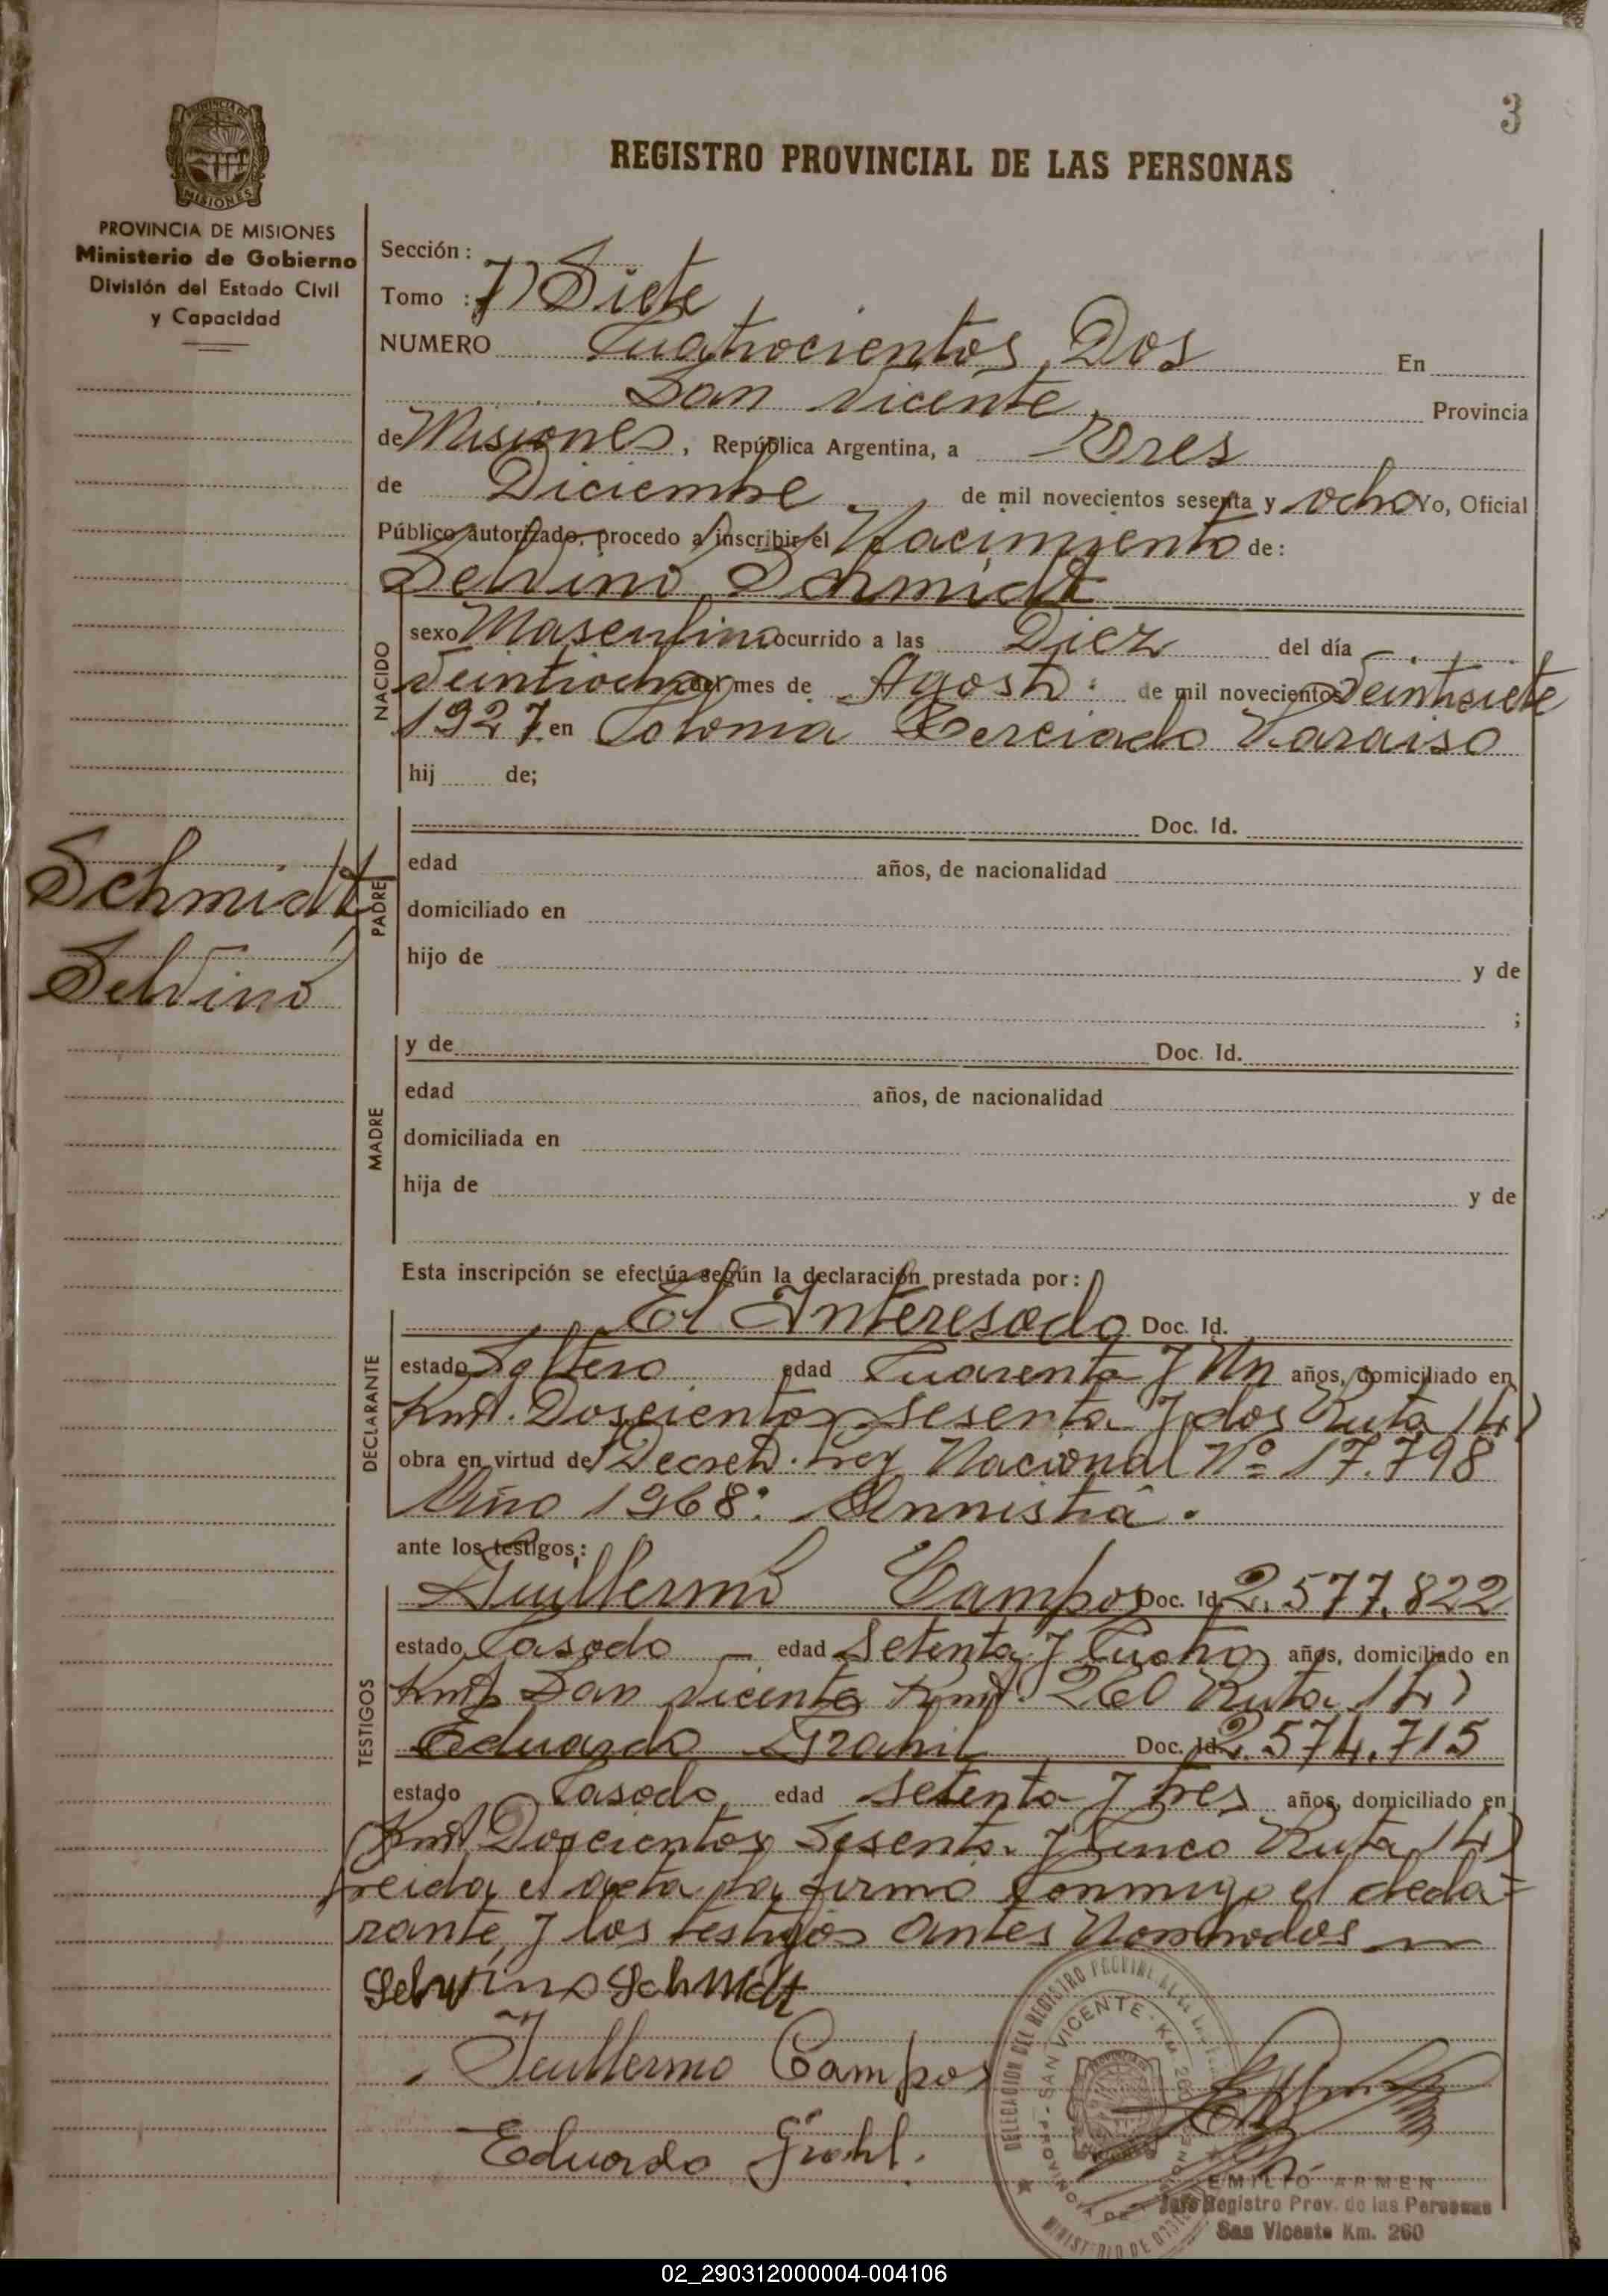 3
REGISTRO PROVINCIAL DE LAS PERSONAS
PROVINCIA DE MISIONES
Ministerio de Gobierno
División del Estado Civil
y Capacidad
Schmidt
Selvino
Sección :
Tomo : 7) Siete
NUMERO Cuatrocientos Dos En
San Vicente, Provincia
de Misiones, República Argentina, a Tres
de Diciembre de mil novecientos sesenta y ocho Yo, Oficial
Público autorizado, procedo a inscribir el Nacimiento de:
Selvino Schmidt
NACIDO
sexo Masculino ocurrido a las Diez del día
Veintiocho del mes de Agosto: de mil novecientos Veintisiete
1927 en Colonia Terciado Paraiso
hij de;
PADRE
Doc. Id.
edad años, de nacionalidad
domiciliado en
hijo de y de
;
MADRE
y de Doc. Id.
edad años, de nacionalidad
domiciliada en
hija de y de
Esta inscripción se efectúa según la declaración prestada por:
DECLARANTE
El Interesado Doc. Id.
estado Soltero edad Cuarenta y Un años, domiciliado en
Kmt. Doscientos Sesenta y dos Ruta 14)
obra en virtud de Decreto. Ley Nacional Nº 17.798
Año 1968: Amnistia.
ante los testigos:
TESTIGOS
Guillermo Campos Doc. Id. 2.577.822
estado Casado — edad Setenta y Cuatro años, domiciliado en
San Vicente Kmt. 260 Ruta 14)
Eduardo Doc. Id. 2.574.715
estado Casado edad Setenta y tres años, domiciliado en
Kmt Doscientos Sesenta y Cinco Ruta 14)
Leida el acta la firmó Conmigo el decla=
rante, y los testigos antes Nombrados
Selvino Schmidt
Guillermo Campos
Eduardo Grahl.
DELEGACION DEL REGISTRO
SAN VICENTE - KM. 260
EMILIO ARMEN
Jefe Registro Prov. de las Personas
San Vicente Km. 260
02_290312000004-004106